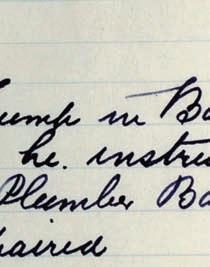 ump in Ba
he. instru
Plumber Ba
aired